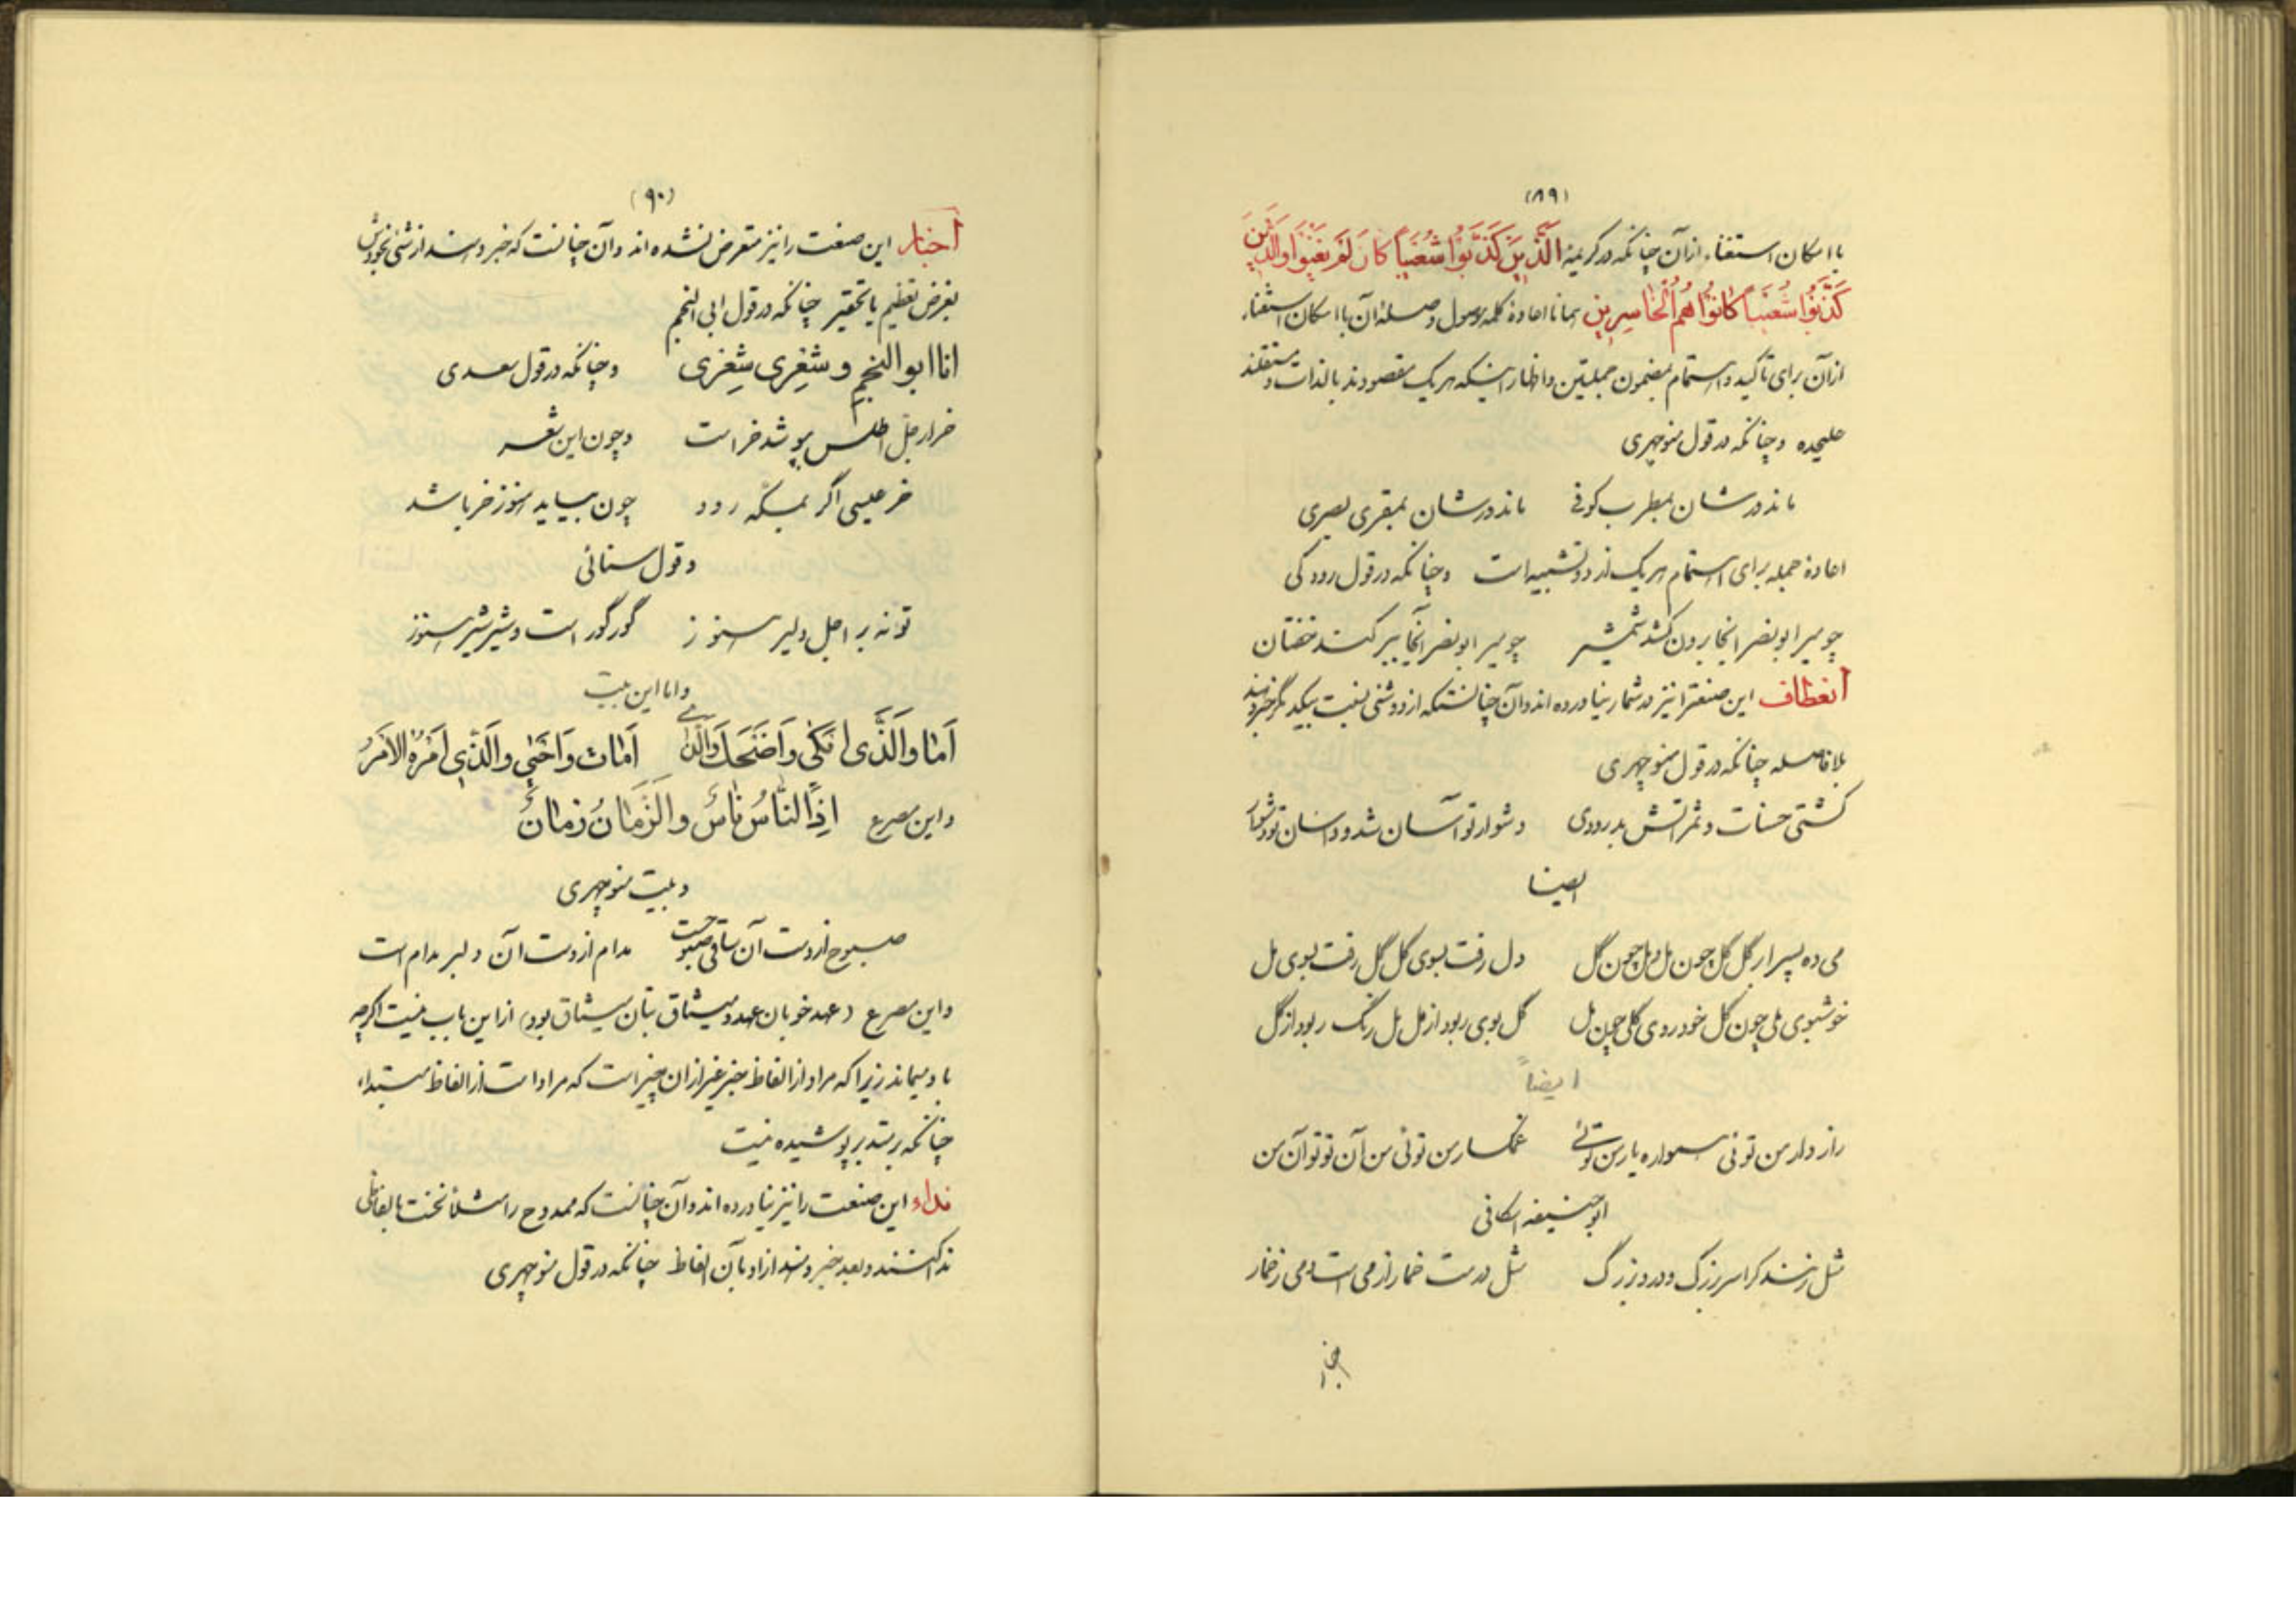 (۸۹)
با امکان استغناء ازآن چنانکه در کریمهٔ الَّذینَ کَذَّبُوا شُعَیْباً کَانَ لَمْ یَغْنَوْا وَالَّذینَ
کَذَّبُوا شُعَیْباً کانُوا هُمُ الْخاسِرینَ همانا اعادهٔ کلمه موصول وصلهٔ آن با امکان استغناء
ازآن برای تاکید و استتمام مضمون جملتین و اظهار اینکه هریک مقصودند بالذات و مستقلند
علیحده وچنانکه درقول منوچهری
ماند ورشان بمطرب کوفی ماند ورشان بمقری بصری
اعادهٔ جمله برای استتمام هریک از دو تشبیه است وچنانکه درقول رودکی
چو میر ابو نصر انجا برون کشد شمشیر چو میر ابو نصر آنجا ببر کند خفتان
انعطاف این صنعترا نیز در شمار نیاورده اند وآن چنانستکه از دو شئی نسبت بیکدیگر خبر دهند
بلافاصله چنانکه درقول منوچهری
کشتی حسنات و ثمراتش بدرودی دشوار تو آسان شد و آسان تو دشوار
ایضا
می ده پسرا بر گل گل چون مل و مل چون گل دل رفت بسوی گل گل رفت بسوی مل
خوشبوی ملی چون گل خودروی گلی چون مل گل بوی ربود از مل مل رنگ ربود از گل
ایضاً
رازدار من توئی همواره یار من توئی غمگسار من توئی من آن تو تو آن من
ابوحنیفه اسکافی
مثل زنند کرا سر بزرگ درد بزرگ مثل درست خمار از می است و می ز خمار
اخبار
(۹۰)
اخبار این صنعت را نیز متعرض نشده اند وآن چنانست که خبر دهند از شئی بخودش
بغرض تعظیم یا تحقیر چنانکه درقول ابی النجم
انا ابو النجم و شِعْری شِعْری وچنانکه درقول سعدی
خر ار جل اطلس بپوشد خر است وچون این شعر
خر عیسی اگر بمکه رود چون بیاید هنوز خر باشد
وقول سنائی
تو نه بر اجل دلیر هنوز گور گور است و شیر شیر هنوز
واما این بیت
اَما وَالَّذی اَبْکی وَاَضْحَکَ وَالَّذی اَماتَ وَاَحْیی وَالَّذی اَمْرُهُ الاَمْرُ
واین مصرع اِذِ النّاسُ ناسٌ وَالزَّمانُ زَمانُ
وبیت منوچهری
صبوح از دست آن ساقی صبوحست مدام از دست آن دلبر مدام است
واین مصرع (عهد خوبان عهد و میثاق بتان میثاق بود) از این باب نیست اگرچه
باو میماند زیرا که مراد از الفاظ خبر غیر از ان چیز است که مراد است از الفاظ مبتداء
چنانکه بر متدبر پوشیده نیست
نداء این صنعت را نیز نیاورده اند وآن چنانست که ممدوح را مثلاً نخست بالفاظی
ندا کنند و بعد خبر دهند از او بآن الفاظ چنانکه درقول منوچهری